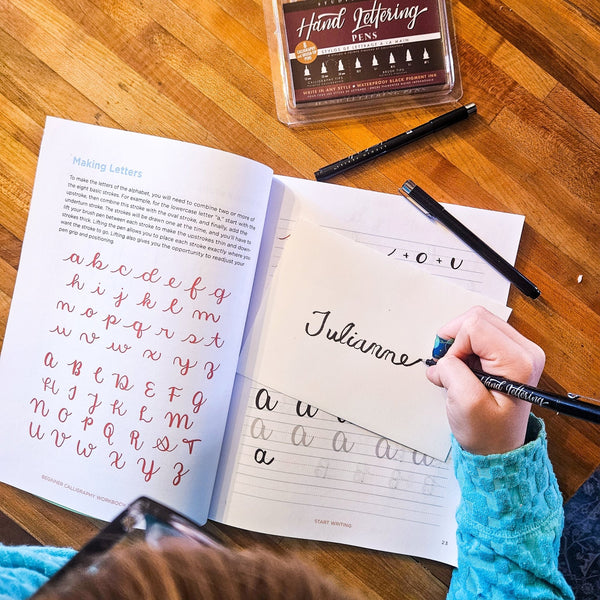 STUDIO
Hand Lettering
PENS
STYLOS DE LETTRAGE À LA MAIN
CALLIGRAPHY TIPS
BRUSH TIPS
WRITE IN ANY STYLE • WATERPROOF BLACK PIGMENT INK
Making Letters
To make the letters of the alphabet, you will need to combine two or more of
the eight basic strokes. For example, for the lowercase letter "a," start with the
upstroke, then combine this stroke with the oval stroke, and finally, add the
underturn stroke. The strokes will be drawn one at the time, and you'll have to
lift your brush pen between each stroke to make the upstrokes thin and down-
strokes thick. Lifting the pen allows you to place each stroke exactly where you
want the stroke to go. Lifting also gives you the opportunity to readjust your
pen grip and positioning.
a b c d e f g
h i j k l m
n o p q r s t
u v w x y z
A B C D E F G
H I J K L M
N O P Q R S T
U V W X Y Z
BEGINNER CALLIGRAPHY WORKBOOK
+ O + U
Julianne
Hand Lettering
a a
a a a a a
a a a a a
START WRITING
23